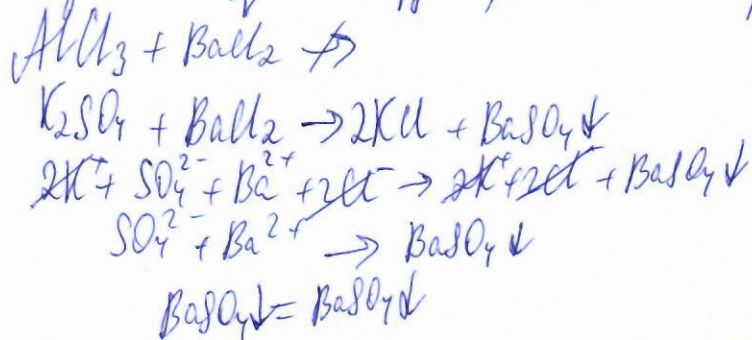 AlCl₃ + BaCl₂ ↛
K₂SO₄ + BaCl₂ → 2KCl + BaSO₄↓
2K⁺ + SO₄²⁻ + Ba²⁺ + 2Cl⁻ → 2K⁺ + 2Cl⁻ + BaSO₄↓
SO₄²⁻ + Ba²⁺ → BaSO₄↓
BaSO₄↓ = BaSO₄↓